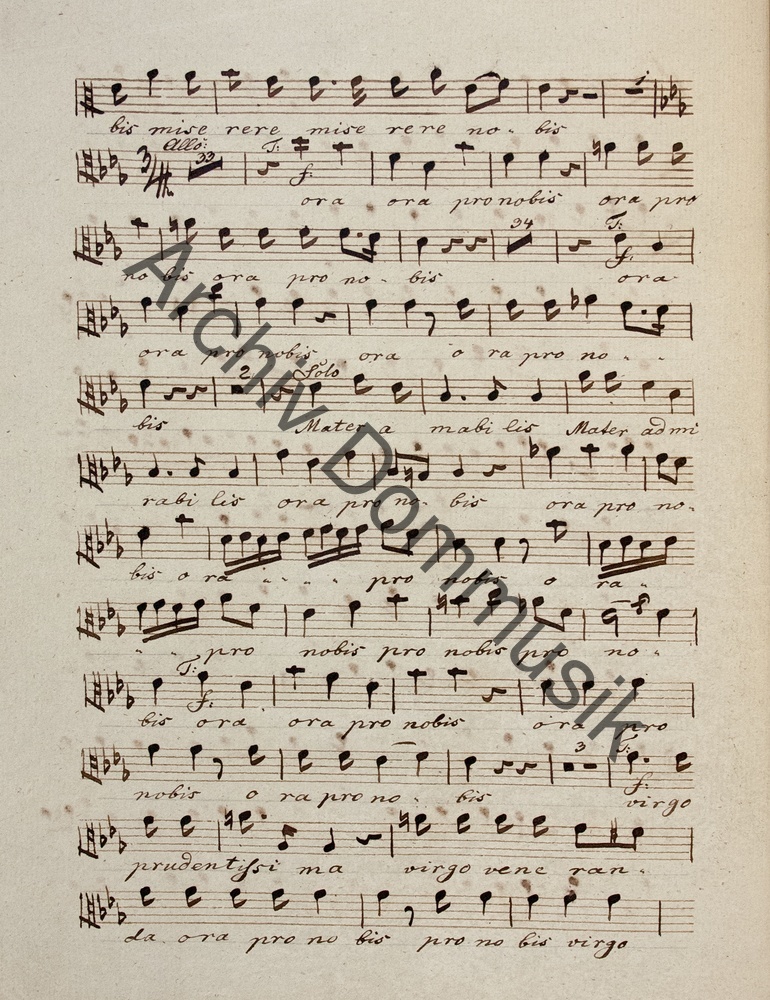 bis mise rere mise rere no - bis
Allo:
33 T:
f.
ora ora pro nobis ora pro
34 T:
f.
no bis ora pro no - bis ora
ora pro nobis ora o ra pro no - -
2 Solo
bis Mater a mabi lis Mater admi
rabi lis ora pro no - bis ora pro no -
bis o ra - - - - pro nobis o ra -
- - pro nobis pro nobis pro no -
T:
f.
bis ora ora pro nobis ora pro
3 T:
f.
nobis o ra pro no - bis virgo
prudentissi ma virgo vene ran -
da ora pro no bis pro no bis virgo
Archiv Dommusik